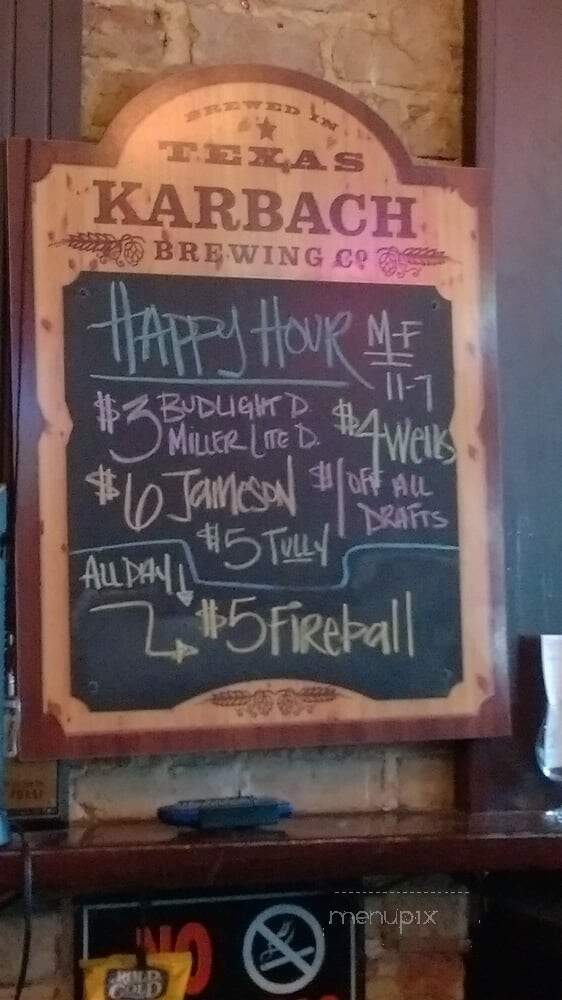 BREWED IN
TEXAS
KARBACH
BREWING CO
HAPPY HOUR M-F
11-7
$3 BUDLIGHT D.
MILLER LITE D.
$4 Wells
$6 Jameson
$1 OFF ALL
DRAFTS
$5 TULLY
ALL DAY
$5 Fireball
NO
ROLD
GOLD
menupix